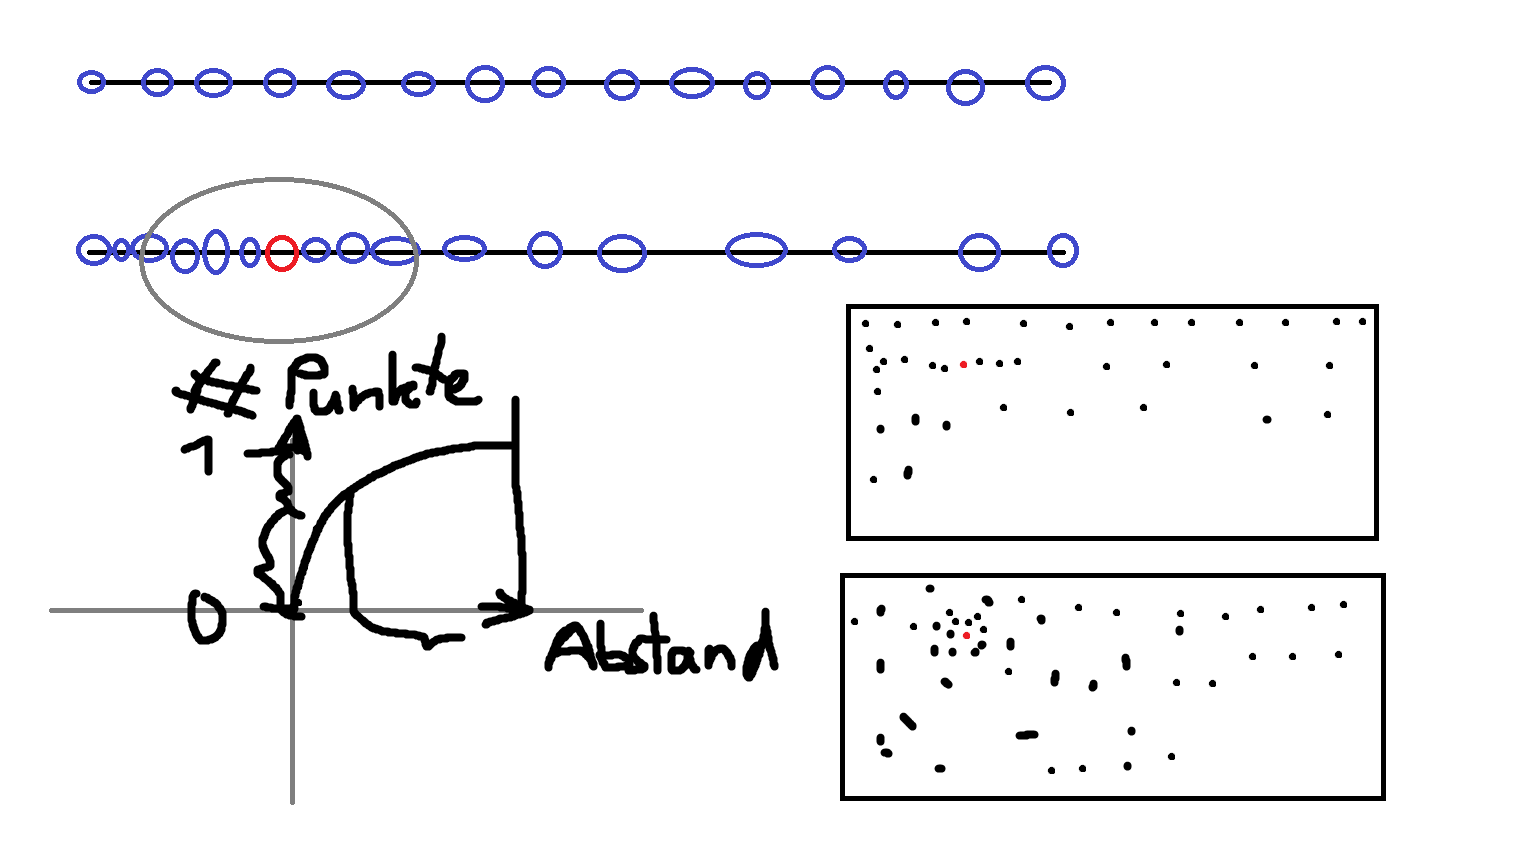 # Punkte
1
0
Abstand